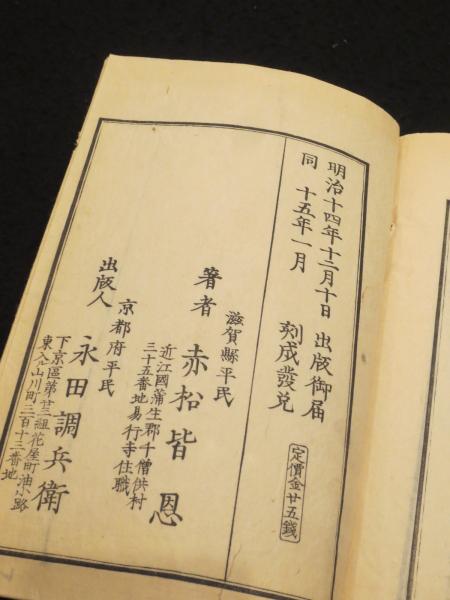 明治十四年十二月十日 出版御届
同 十五年一月 刻成發兌
定價金廿五錢
滋賀縣平民
著者 赤松皆恩
近江國蒲生郡千僧供村
三十五番地易行寺住職
京都府平民
出版人 永田調兵衛
下京區第廿三組花屋町油小路
東入山川町三百十三番地